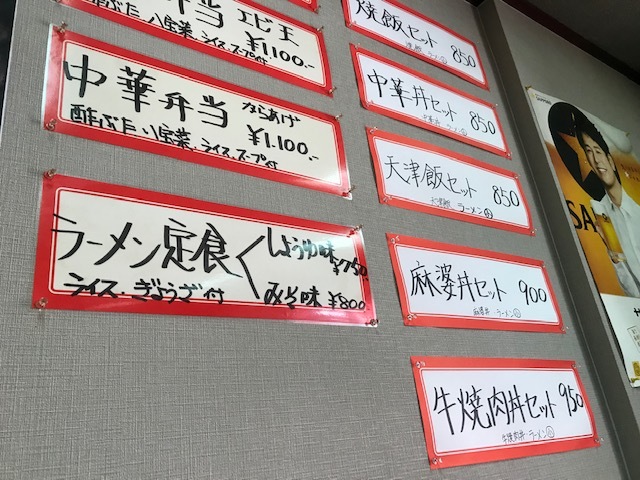 弁当 エビ玉
酢ぶた 八宝菜 ライス、スープ付
¥1.100.-
中華弁当 からあげ
酢ぶた 八宝菜、ライス、スープ付
¥1.100.-
ラーメン定食
しょうゆ味 ¥750
みそ味 ¥800
ライス、ぎょうざ付
焼飯セット 850
中華丼セット 850
中華丼 ラーメン
天津飯セット 850
天津飯 ラーメン
麻婆丼セット 900
麻婆丼・ラーメン
牛焼肉丼セット 950
牛焼肉丼・ラーメン
SA